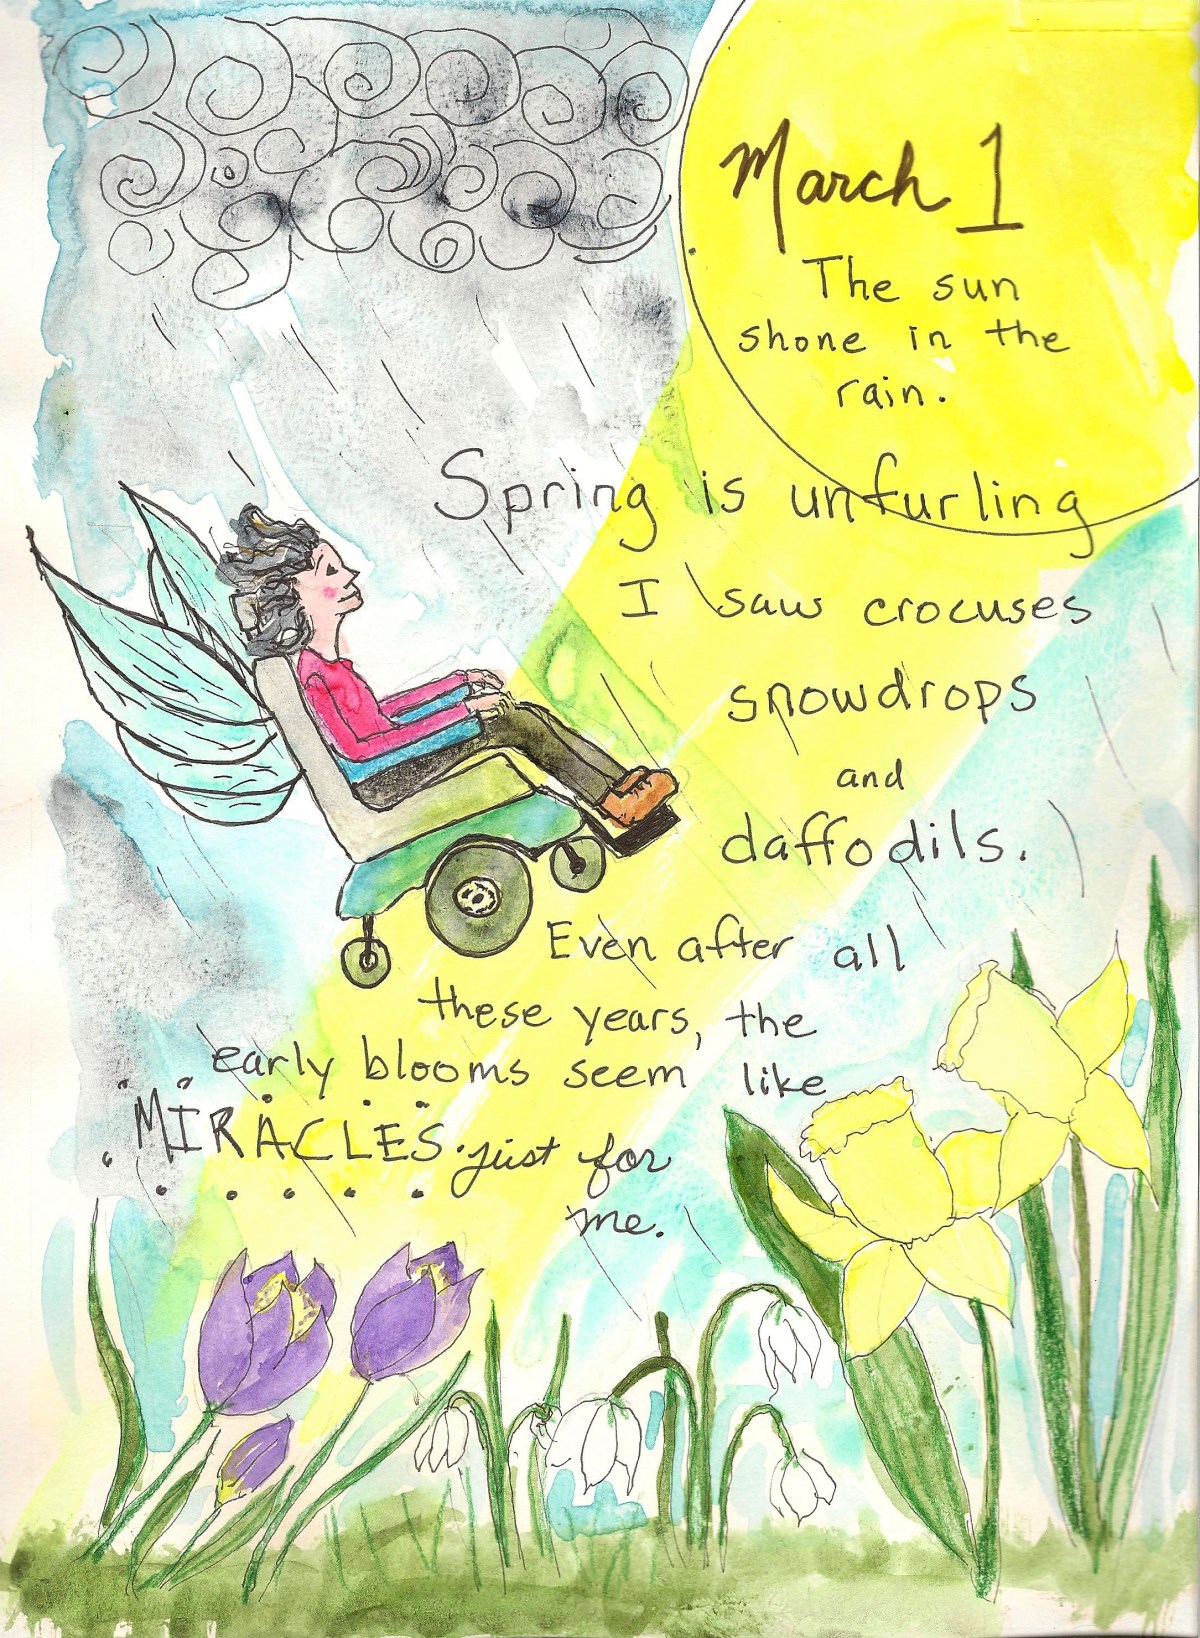 March 1
The sun
shone in the
rain.
Spring is unfurling
I saw crocuses
snowdrops
and
daffodils.
Even after all
these years, the
early blooms seem like
MIRACLES just for
me.